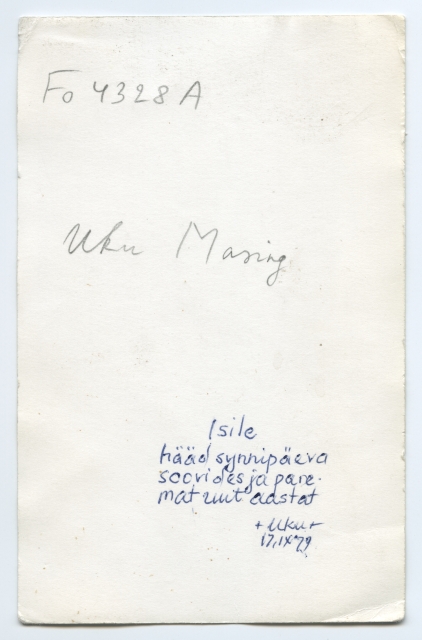 Fo 4328 A
Uku Masing
Isile
hääd synnipäeva
soovides ja pare-
mat uut aastat
+ Uku +
17.IX 79